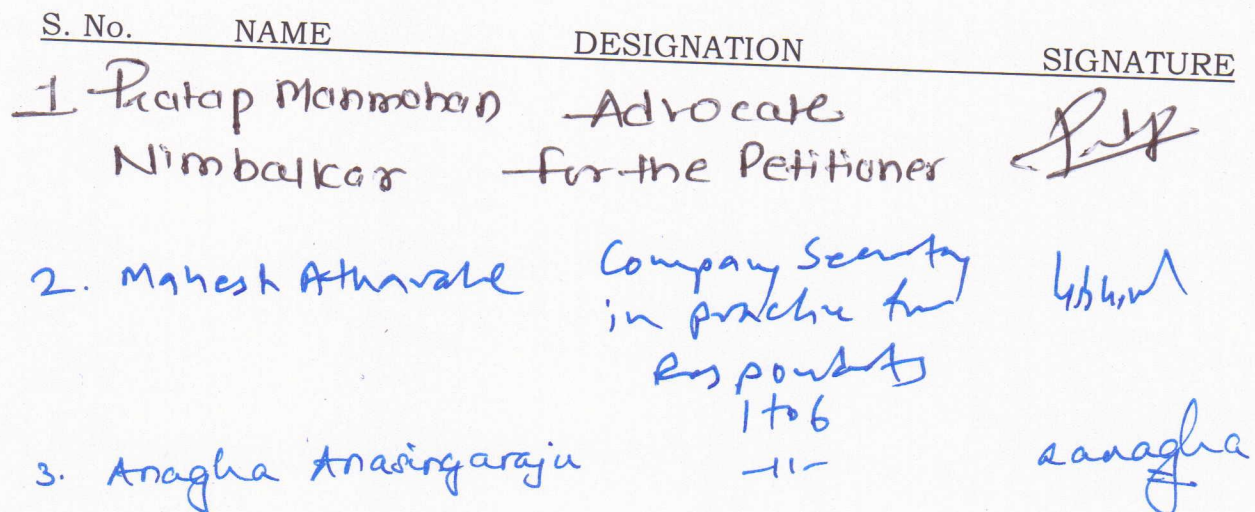 S. No. NAME DESIGNATION SIGNATURE
1 Pratap Manmohan Advocate
Nimbalkar for the Petitioner
2. Mahesh Athavale Company Secretary
in practice for
Respondents
1 to 6
3. Anagha Anasingaraju -11-